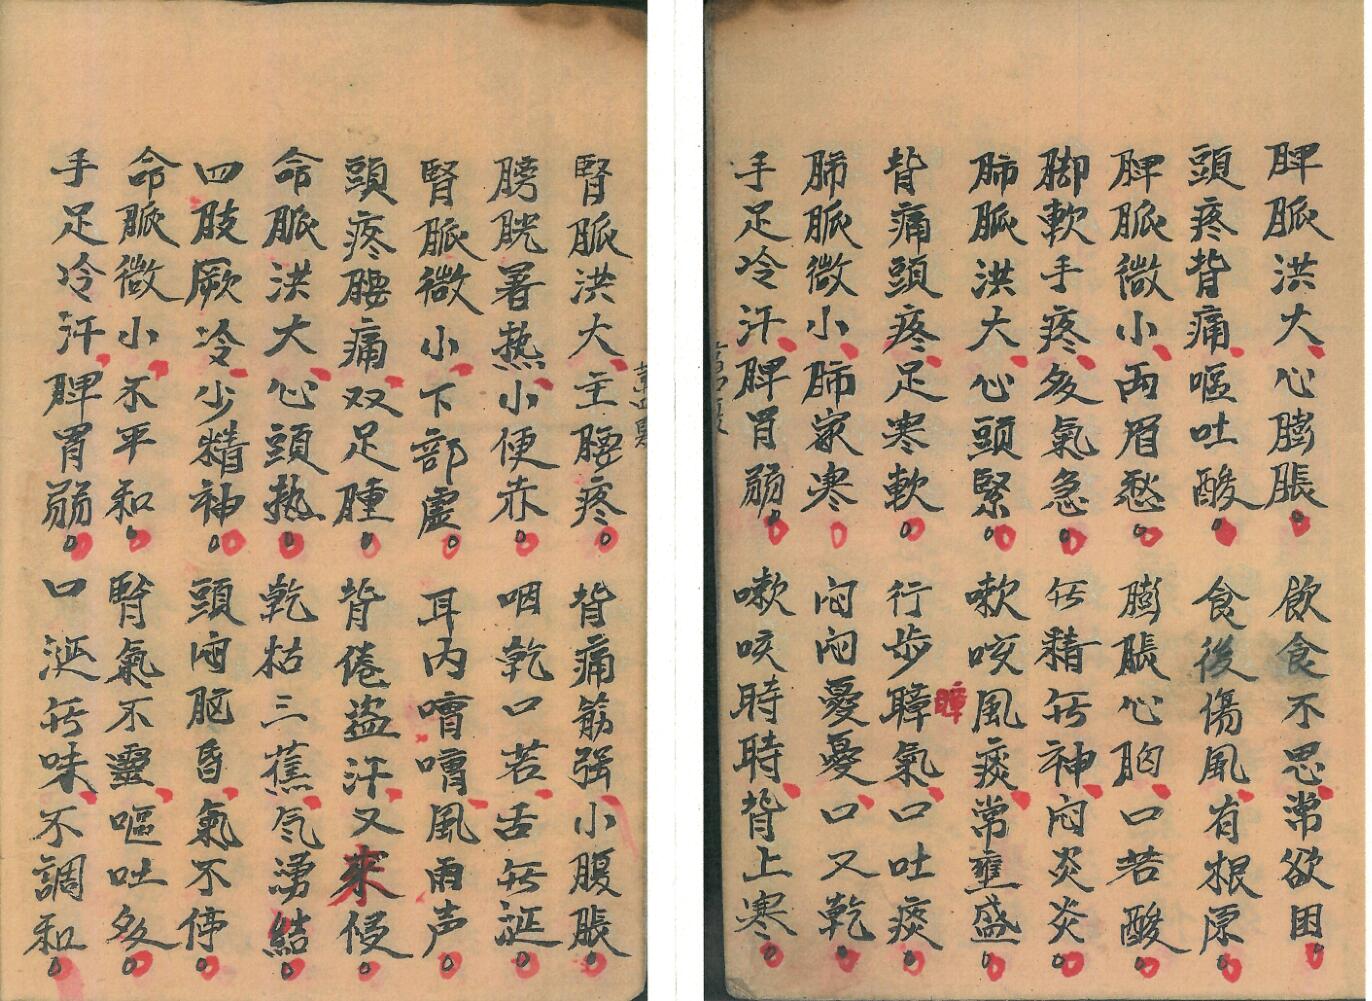 脾脈洪大心膨脹飲食不思常欲困
頭疼背痛嘔吐酸食後傷風有根原
脾脈微小両眉愁膨脹心胸口苦酸
脚軟手疼多氣急無精無神闷炎炎
肺脈洪大心頭緊嗽咳風痰常壅盛
背痛頭疼足寒軟行步瞕氣口吐痰
瞕
肺脈微小肺家寒闷闷憂憂口又乾
手足冷汗脾胃弱嗽咳時時背上寒
腎脈洪大主腰疼背痛筋强小腹脹
膀胱暑热小便赤咽乾口苦舌無涎
腎脈微小下部虛耳内嘈嘈風雨声
頭疼腰痛双足腫背倦盜汗又來侵
命脈洪大心頭热乾枯三蕉气湧結
四肢厥冷少精神頭闷脑昏氣不停
命脈微小不平和腎氣不靈嘔吐多
手足冷汗脾胃弱口涎無味不調和